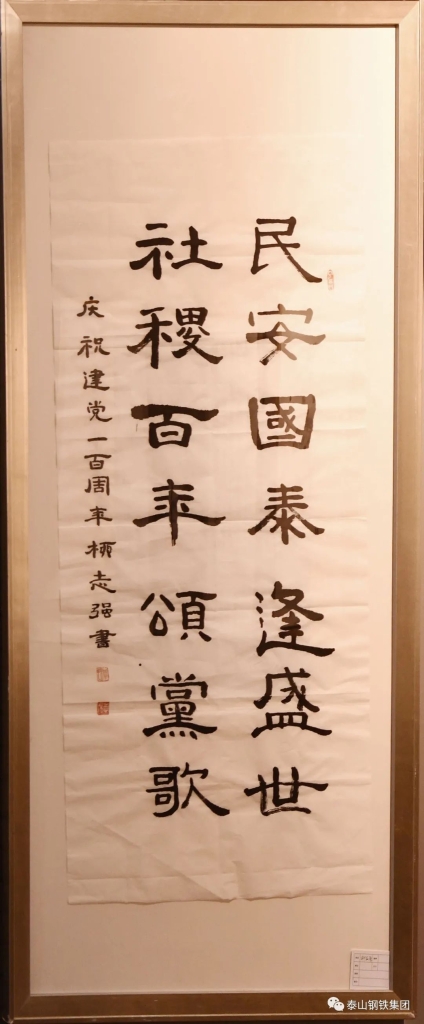 民安國泰逢盛世
社稷百年頌黨歌
庆祝建党一百周年柳志强書
泰山钢铁集团